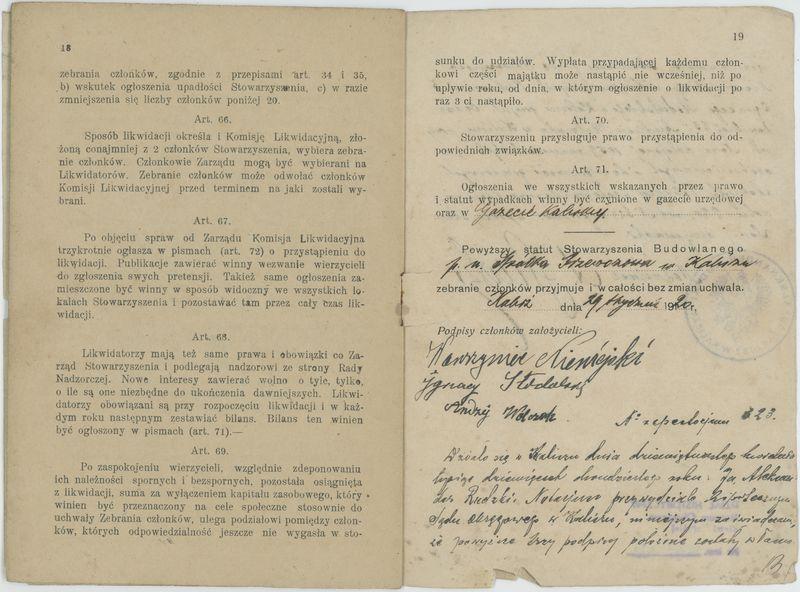 18
zebrania członków, zgodnie z przepisami art. 34 i 35,
b) wskutek ogłoszenia upadłości Stowarzyszenia, c) w razie
zmniejszenia się liczby członków poniżej 20.
Art. 66.
Sposób likwidacji określa i Komisję Likwidacyjną, zło-
żoną conajmniej z 2 członków Stowarzyszenia, wybiera zebra-
nie członków. Członkowie Zarządu mogą być wybierani na
Likwidatorów. Zebranie członków może odwołać członków
Komisji Likwidacyjnej przed terminem na jaki zostali wy-
brani.
Art. 67.
Po objęciu spraw od Zarządu Komisja Likwidacyjna
trzykrotnie ogłasza w pismach (art. 72) o przystąpieniu do
likwidacji. Publikacje zawierać winny wezwanie wierzycieli
do zgłoszenia swych pretensji. Takież same ogłoszenia za-
mieszczone być winny w sposób widoczny we wszystkich lo-
kalach Stowarzyszenia i pozostawać tam przez cały czas lik-
widacji.
Art. 68.
Likwidatorzy mają też same prawa i obowiązki co Za-
rząd Stowarzyszenia i podlegają nadzorowi ze strony Rady
Nadzorczej. Nowe interesy zawierać wolno o tyle, tylko,
o ile są one niezbędne do ukończenia dawniejszych. Likwi-
datorzy obowiązani są przy rozpoczęciu likwidacji i w każ-
dym roku następnym zestawiać bilans. Bilans ten winien
być ogłoszony w pismach (art. 71).—
Art. 69.
Po zaspokojeniu wierzycieli, względnie zdeponowaniu
ich należności spornych i bezspornych, pozostała osiągnięta
z likwidacji, suma za wyłączeniem kapitału zasobowego, który
winien być przeznaczony na cele społeczne stosownie do
uchwały Zebrania członków, ulega podziałowi pomiędzy człon-
ków, których odpowiedzialność jeszcze nie wygasła w sto-
19
sunku do udziałów. Wypłata przypadającej każdemu człon-
kowi części majątku może nastąpić nie wcześniej, niż po
upływie roku, od dnia, w którym ogłoszenie o likwidacji po
raz 3 ci nastąpiło.
Art. 70.
Stowarzyszeniu przysługuje prawo przystąpienia do od-
powiednich związków.
Art. 71.
Ogłoszenia we wszystkich wskazanych przez prawo
i statut wypadkach winny być czynione w gazecie urzędowej
oraz w Gazecie Kaliskiej
Powyższy statut Stowarzyszenia Budowlanego
p. n. Spółka Szewczowa w Kaliszu
zebranie członków przyjmuje i w całości bez zmian uchwala.
Kalisz dnia 29 stycznia 1920 r.
Podpisy członków założycieli:
Wawrzyniec Niemiejski
Ignacy Stodolski
Andrzej
№ repertorjum 323.
Działo się w Kaliszu dnia dziewiątego
tysiąc dziewięćset dwudziestego roku. Ja, Aleksan-
der Rudzki, Notarjusz przy wydziale Hipotecznym
Sądu Okręgowego w Kaliszu, niniejszym zaświadczam,
że powyższe trzy podpisy położone zostały